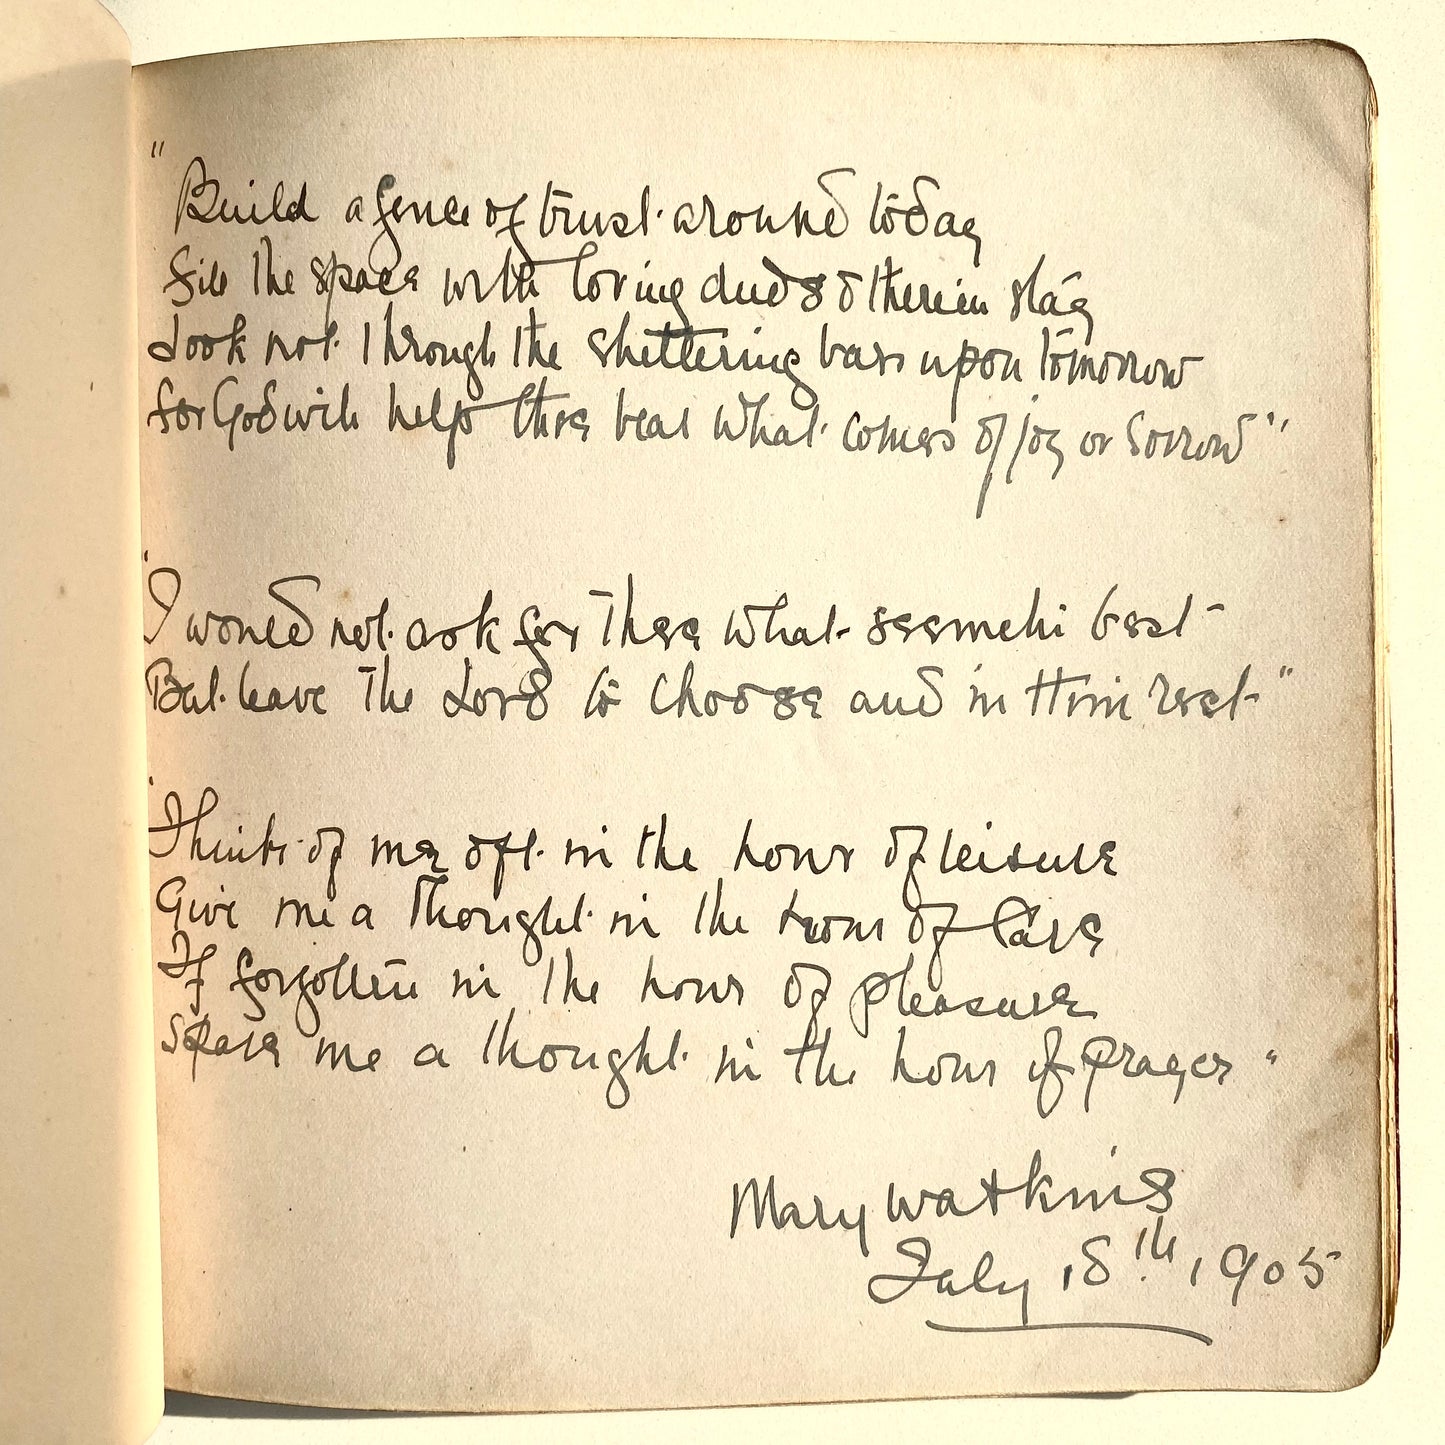 "Build a fence of trust around today
Fill the space with loving deeds & therein stay
Look not through the sheltering bars upon tomorrow
for God will help thee bear what comes of joy or sorrow"
"I would not ask for Thee what seemeth best
But leave the Lord to choose and in Him rest"
"Think of me oft in the hour of leisure
Give me a thought in the hour of Care
If forgotten in the hour of pleasure
Spare me a thought in the hour of prayer"
Mary Watkins
July 18th, 1905